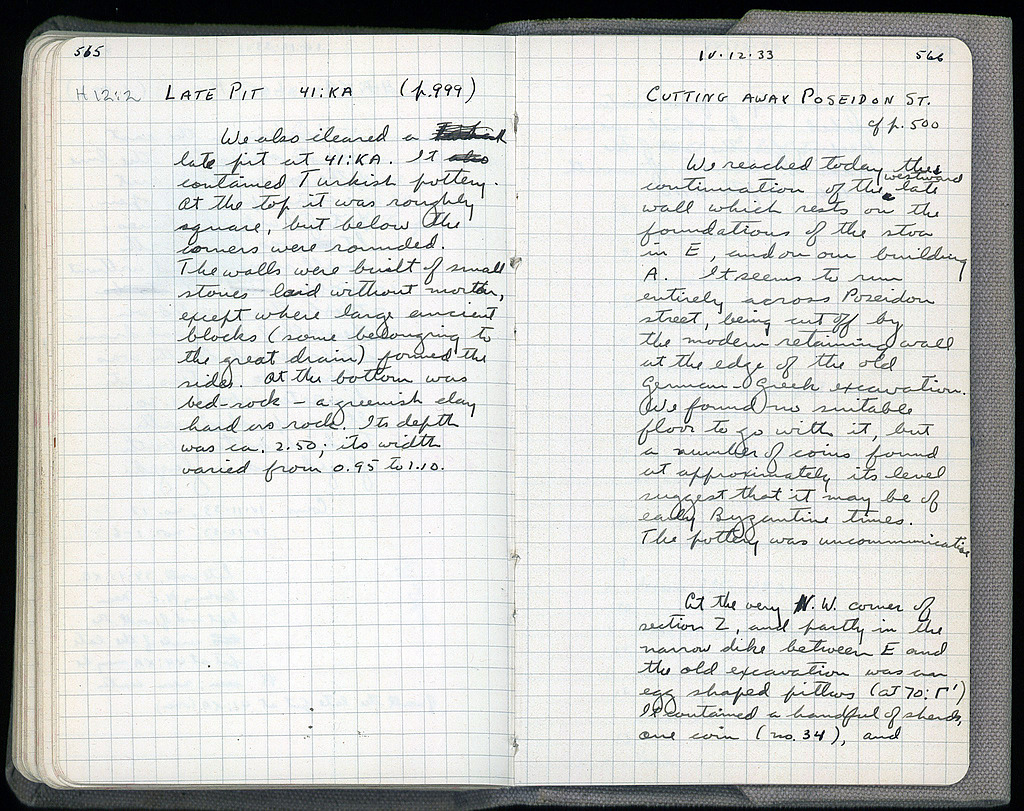 565
H 12:2 LATE PIT 41:KA (p.999)
We also cleared a
late pit at 41:KA. It also
contained Turkish pottery.
At the top it was roughly
square, but below the
corners were rounded.
The walls were built of small
stones laid without mortar,
except where large ancient
blocks (some belonging to
the great drain) formed the
sides. At the bottom was
bed-rock – a greenish clay
hard as rock. Its depth
was ca. 2.50; its width
varied from 0.95 to 1.10.
IV.12.33 566
CUTTING AWAY POSEIDON ST.
cf p. 500
We reached today the
westward
continuation of the late
wall which rests on the
foundations of the stoa
in E, and on our building
A. It seems to run
entirely across Poseidon
street, being cut off by
the modern retaining wall
at the edge of the old
German-Greek excavation.
We found no suitable
floor to go with it, but
a number of coins found
at approximately its level
suggest that it may be of
early Byzantine times.
The pottery was uncommunicative
At the very N.W. corner of
section Z, and partly in the
narrow dike between E and
the old excavation was an
egg shaped pithos (at 70:Γ')
It contained a handful of sherds,
one coin (no. 34), and